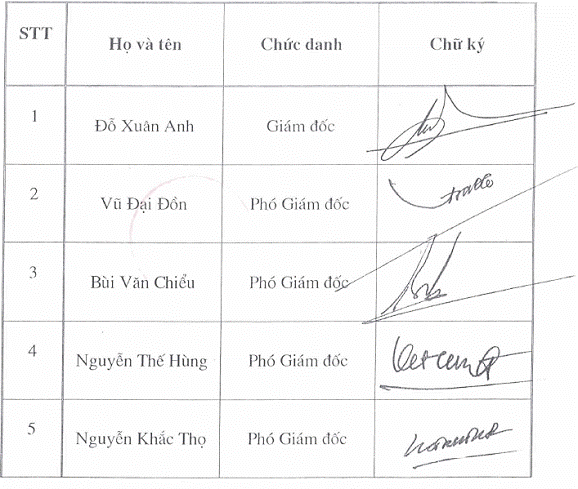 STT Họ và tên Chức danh Chữ ký
1 Đỗ Xuân Anh Giám đốc
2 Vũ Đại Đồn Phó Giám đốc
3 Bùi Văn Chiểu Phó Giám đốc
4 Nguyễn Thế Hùng Phó Giám đốc
5 Nguyễn Khắc Thọ Phó Giám đốc